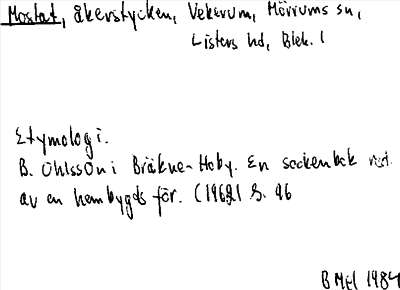 Mostat, åkerstycken, Vekerum, Mörrums sn,
Listers hd, Blek. l
Etymologi.
B. Ohlsson i Bräkne-Hoby. En sockenbok red.
av en hembygdsför. (1969) s. 96
1984